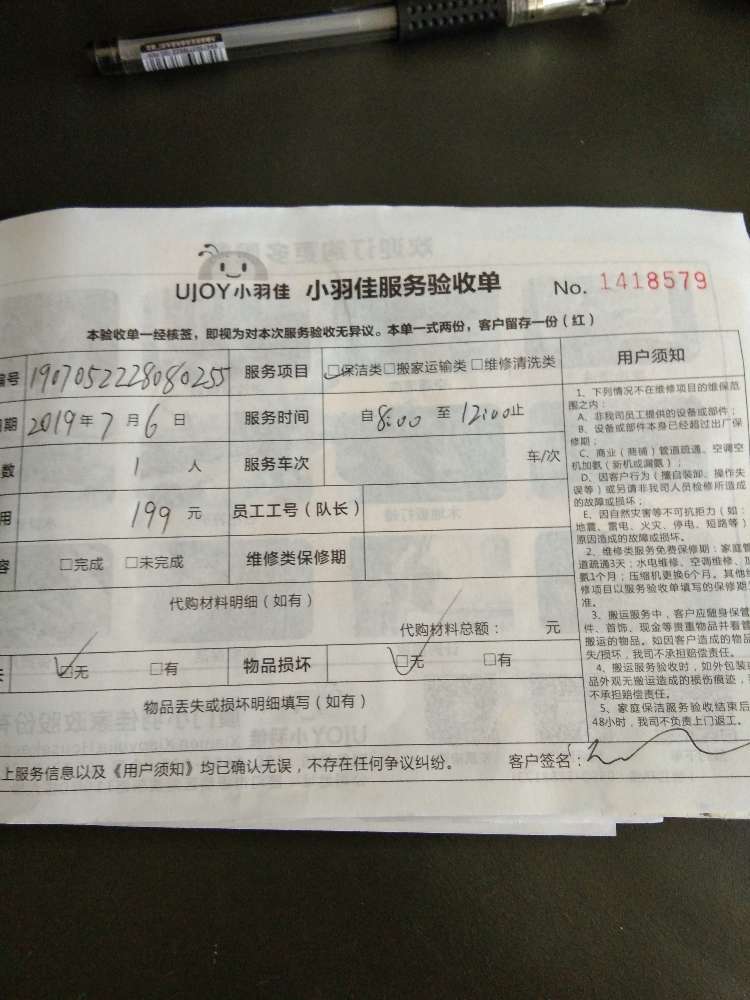 UJOY小羽佳 小羽佳服务验收单 No. 1418579
本验收单一经核签，即视为对本次服务验收无异议。本单一式两份，客户留存一份（红）
编号 1907052228080255 服务项目 □保洁类□搬家运输类 □维修清洗类
期 2019年7月6日 服务时间 自8:00至12:00止
数 1 人 服务车次 车/次
用 199 元 员工工号（队长）
容 □完成 □未完成 维修类保修期
代购材料明细（如有）
代购材料总额： 元
失 □无 □有 物品损坏 □无 □有
物品丢失或损坏明细填写（如有）
上服务信息以及《用户须知》均已确认无误，不存在任何争议纠纷。 客户签名：
用户须知
1、下列情况不在维修项目的维保范
围之内：
A、非我司员工提供的设备或部件；
B、设备或部件本身已经超过出厂保
修期；
C、商业（商铺）管道疏通、空调空
机加氨（新机或漏氨）；
D、因客户行为（擅自装卸、操作失
误等）或另请非我司人员检修所造成
的故障或损坏；
E、因自然灾害等不可抗拒力（如：
地震、雷电、火灾、停电、短路等）
原因造成的故障或损坏。
2、维修类服务免费保修期：家庭管
道疏通3天；水电维修、空调维修、加
氨1个月；压缩机更换6个月。其他维
修项目以服务验收单填写的保修期为
准。
3、搬运服务中，客户应随身保管
件、首饰、现金等贵重物品并看管
搬运的物品。如因客户造成的物品
失/损坏，我司不承担赔偿责任。
4、搬运服务验收时，如外包装
品外观无搬运造成的损伤痕迹，
不承担赔偿责任。
5、家庭保洁服务验收结束后
48小时，我司不负责上门返工。